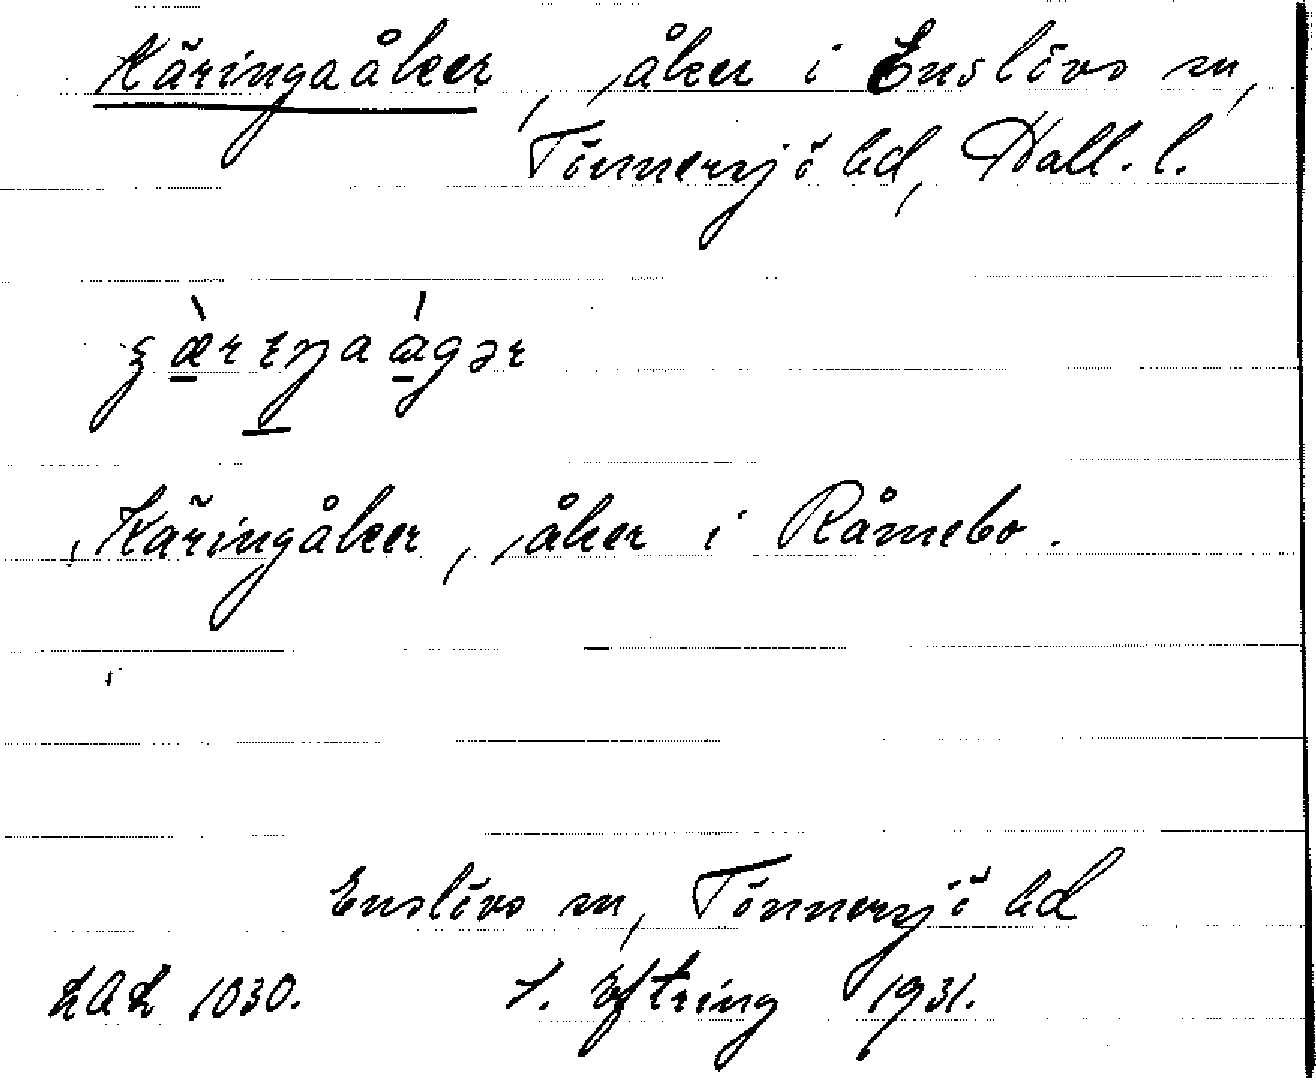 Käringaåker, åker i Enslövs sn,
Tönnersjö hd, Hall. l.
Käringåker, åker i Råmebo.
Enslövs sn, Tönnersjö hd
LAL 1030. S. Eftring 1931.